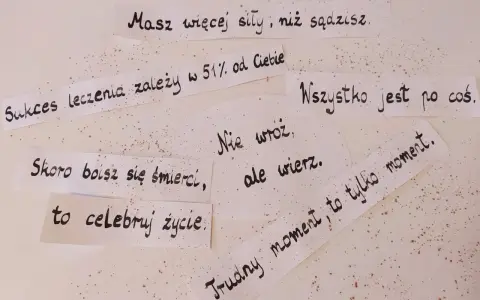 Masz więcej siły, niż sądzisz.
Sukces leczenia zależy w 51% od Ciebie
Wszystko jest po coś.
Nie wróż,
ale wierz.
Skoro boisz się śmierci,
to celebruj życie.
Trudny moment, to tylko moment.